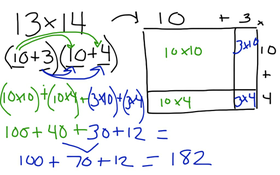 13×14 → 10 + 3 ×
(10+3)(10+4)
10×10 3×10 10
+
10×4 3×4 4
(10×10)+(10×4)+(3×10)+(3×4)
100+40+30+12=
100+70+12=182